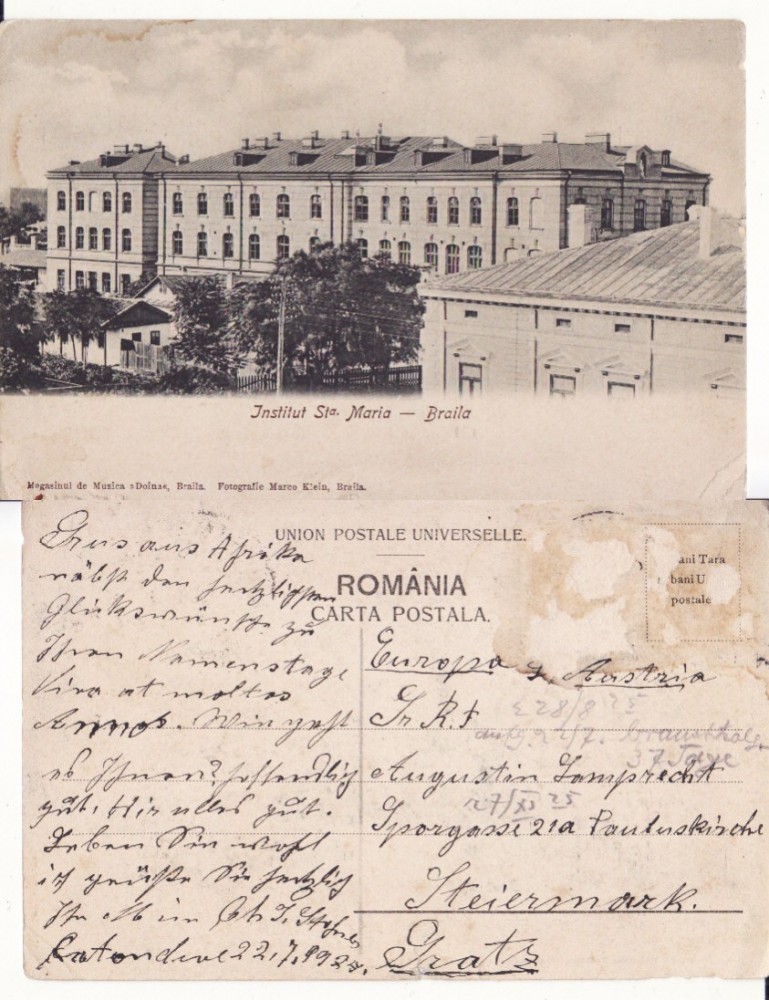 Institut Sta. Maria — Braila
Magasinul de Musica »Doina«, Braila. Fotografie Marco Klein, Braila.
UNION POSTALE UNIVERSELLE.
ROMÂNIA
CARTA POSTALA.
ani Tara
bani U
postale
Grus aus Afrika
näbst den herzlichsten
Glückwünsche zu
Ihren Namenstage
Viva at moltos
Annos. Wie geht
es Ihnen? hoffendlich
gut. Mir alles gut.
Leben Sie wohl
ich grüße Sie herzlich
Ihr
22.7.192
Europa Austria
Augustin Lamprecht
Sporgasse 21a Pauluskirche
Steiermark.
Gratz
28/8
22/7.
37 Tage
25